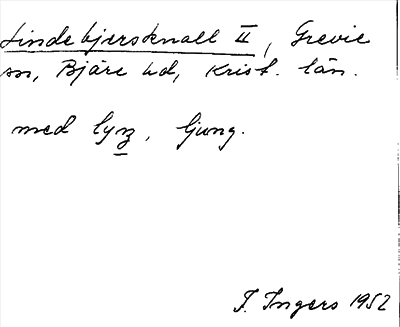 Lindebjersknall II, Grevie
sn, Bjäre hd, Krist. län.
med lyng, ljung.
F. Ingers 1952